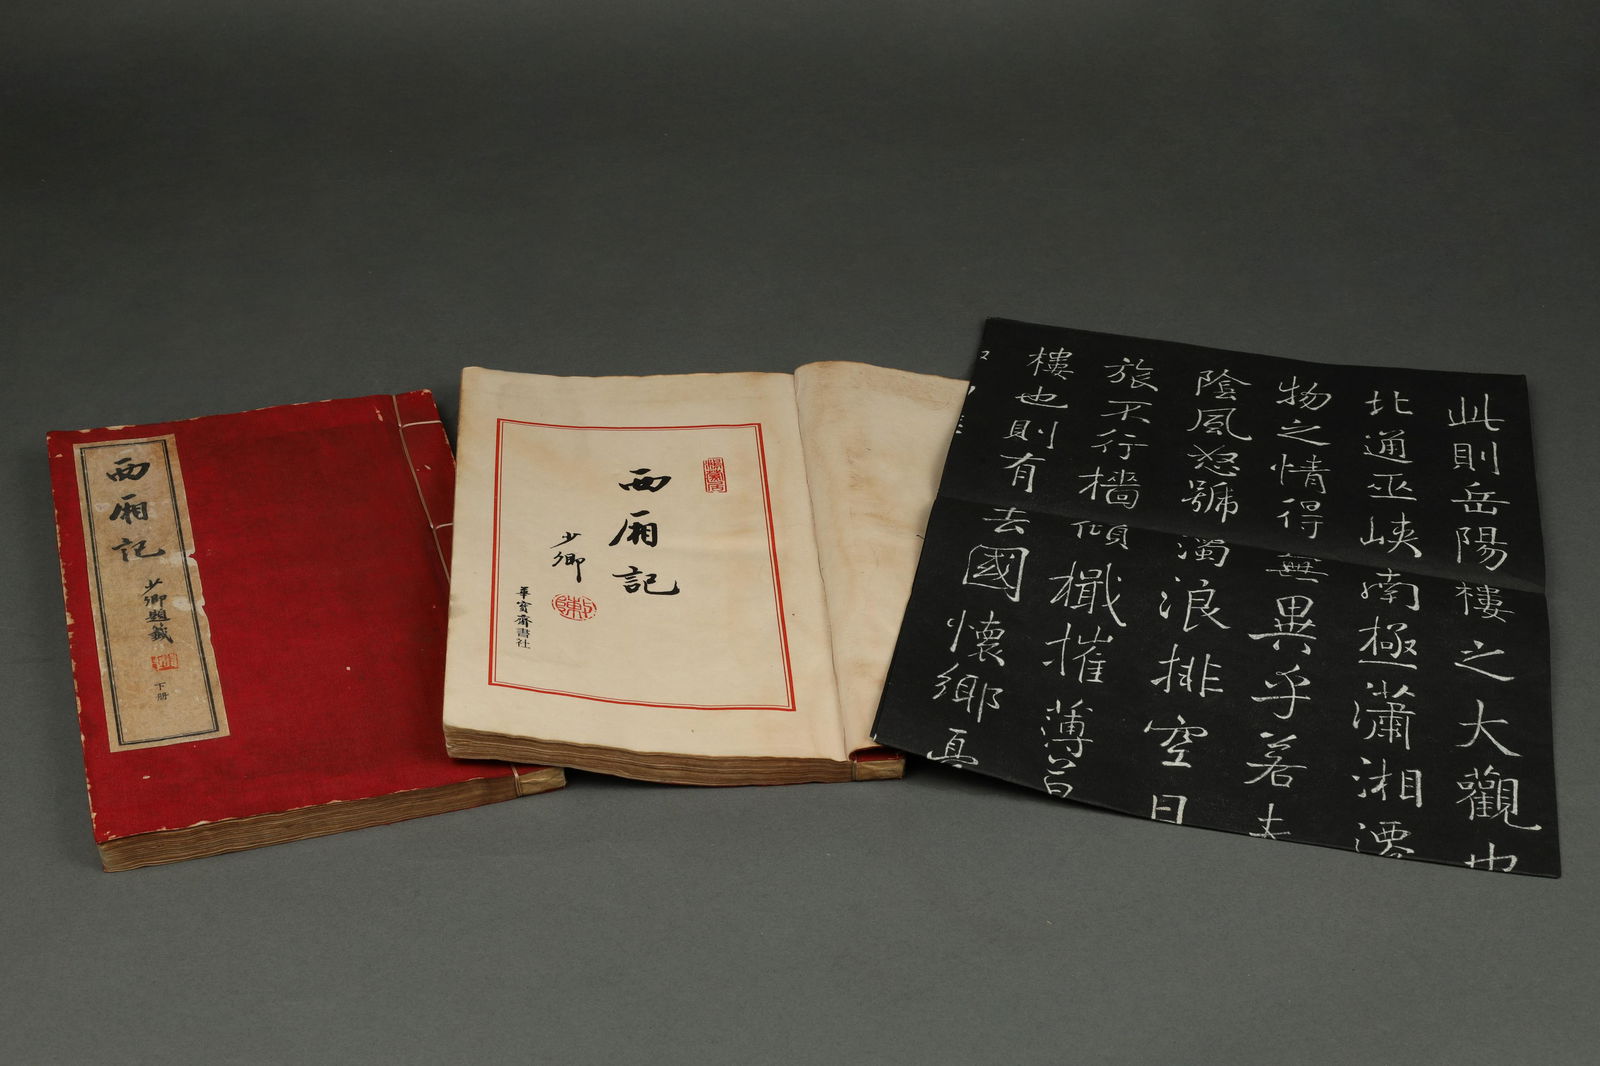 西厢記
少卿題籤
下册
西厢記
少卿
華寳齋書社
此則岳陽樓之大觀也
北通巫峽南極瀟湘遷
物之情得無異乎若夫
陰風怒號濁浪排空日
旅不行檣傾檝摧薄
樓也則有去國懷鄉